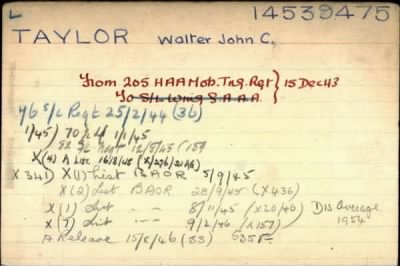 L 14539475
TAYLOR Walter John C.
From 205 HAA Mob. Tng. Rgt } 15 Dec 43
To S/L Wing S.A.A.A.
46 S/L Regt 25/2/44 (36)
1/45) 70 1/1/45
S/L Regt 12/5/45 (159
X(4) A List. 16/8/45 (X/276/21A6)
X341) X(1) List BAOR 5/9/45
X(2) List BAOR 28/9/45 (X436)
X(1) List -- 8/11/45 (X20/46) Dis Average
X(7) List -- 9/2/46 (X157) 1954
A Release 15/5/46 (33)